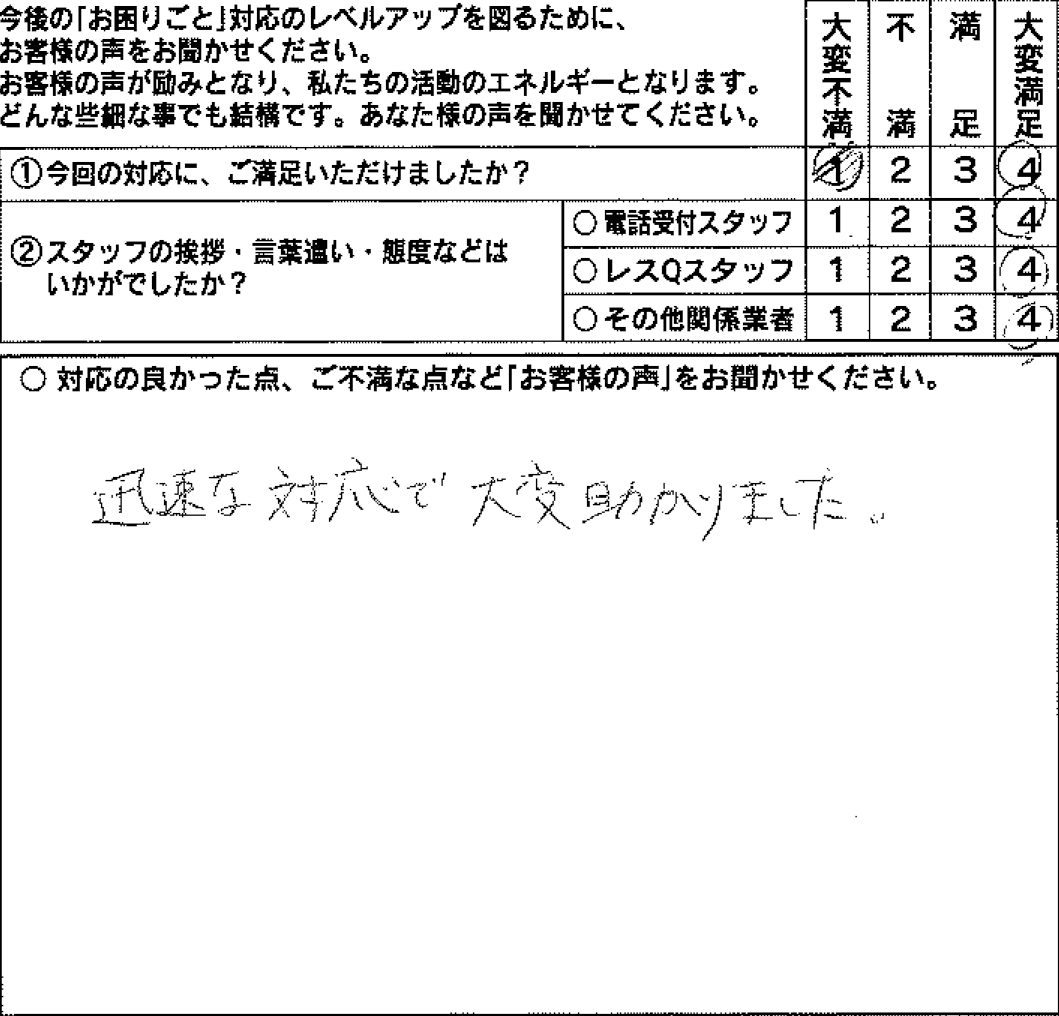 今後の「お困りごと」対応のレベルアップを図るために、
お客様の声をお聞かせください。
お客様の声が励みとなり、私たちの活動のエネルギーとなります。
どんな些細な事でも結構です。あなた様の声を聞かせてください。
大変不満 不満 満足 大変満足
①今回の対応に、ご満足いただけましたか？ 1 2 3 4
②スタッフの挨拶・言葉遣い・態度などは
いかがでしたか？
○電話受付スタッフ 1 2 3 4
○レスQスタッフ 1 2 3 4
○その他関係業者 1 2 3 4
○ 対応の良かった点、ご不満な点など「お客様の声」をお聞かせください。
迅速な対応で大変助かりました。